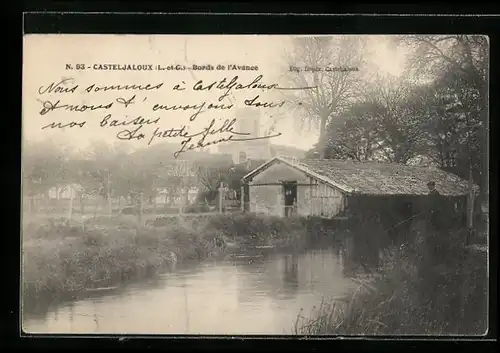 N. 93 - CASTELJALOUX (L.-et-G.) - Bords de l'Avance
Nous sommes à Casteljaloux
et vous envoyons tous
nos baisers
la petite fille
Jeanne